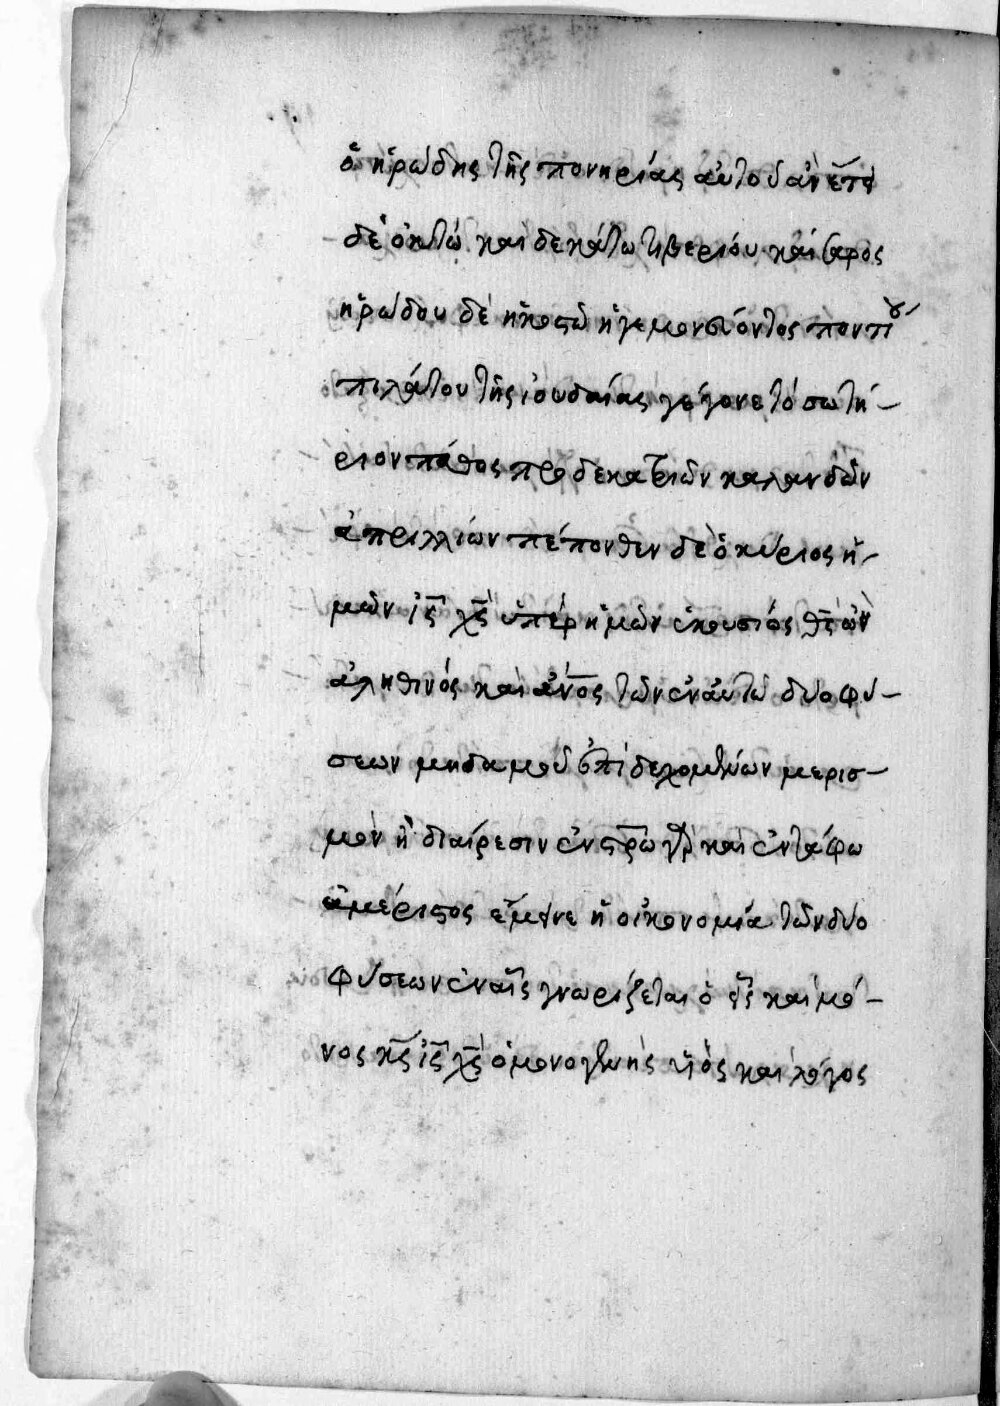 ὁ ἡρώδης τῆς πονηρίας αὐτοῦ ἂν ἔτει
δὲ ὀκτὼ καὶ δεκάτω τιβερίου καίσαρος
ἡρώδου δὲ ἡγεμονεύοντος ποντίου
πιλάτου τῆς ἰουδαίας γέγονε τὸ σωτή-
ριον πάθος πρὸ δεκατριῶν καλανδῶν
ἀπριλλιών πέπονθεν δὲ ὁ κύριος ἡ-
μῶν ις χς ὑπὲρ ἡμῶν ἑκουσίος θς ὢν
ἀληθινὸς καὶ ἄνος τῶν ἐν αὐτῶ δύο φύ-
σεων μηδαμοῦ ἐπιδεχομένων μερισ-
μὸν ἢ διαίρεσιν ἐν στρω γὰρ καὶ ἐν τάφω
ἀμέριστος ἔμεινε ἡ οἰκονομία τῶν δύο
φύσεων ἐν αἷς γνωρίζεται ὁ εἷς καὶ μό-
νος κς ις χς ὁ μονογενὴς υἱὸς καὶ λόγος